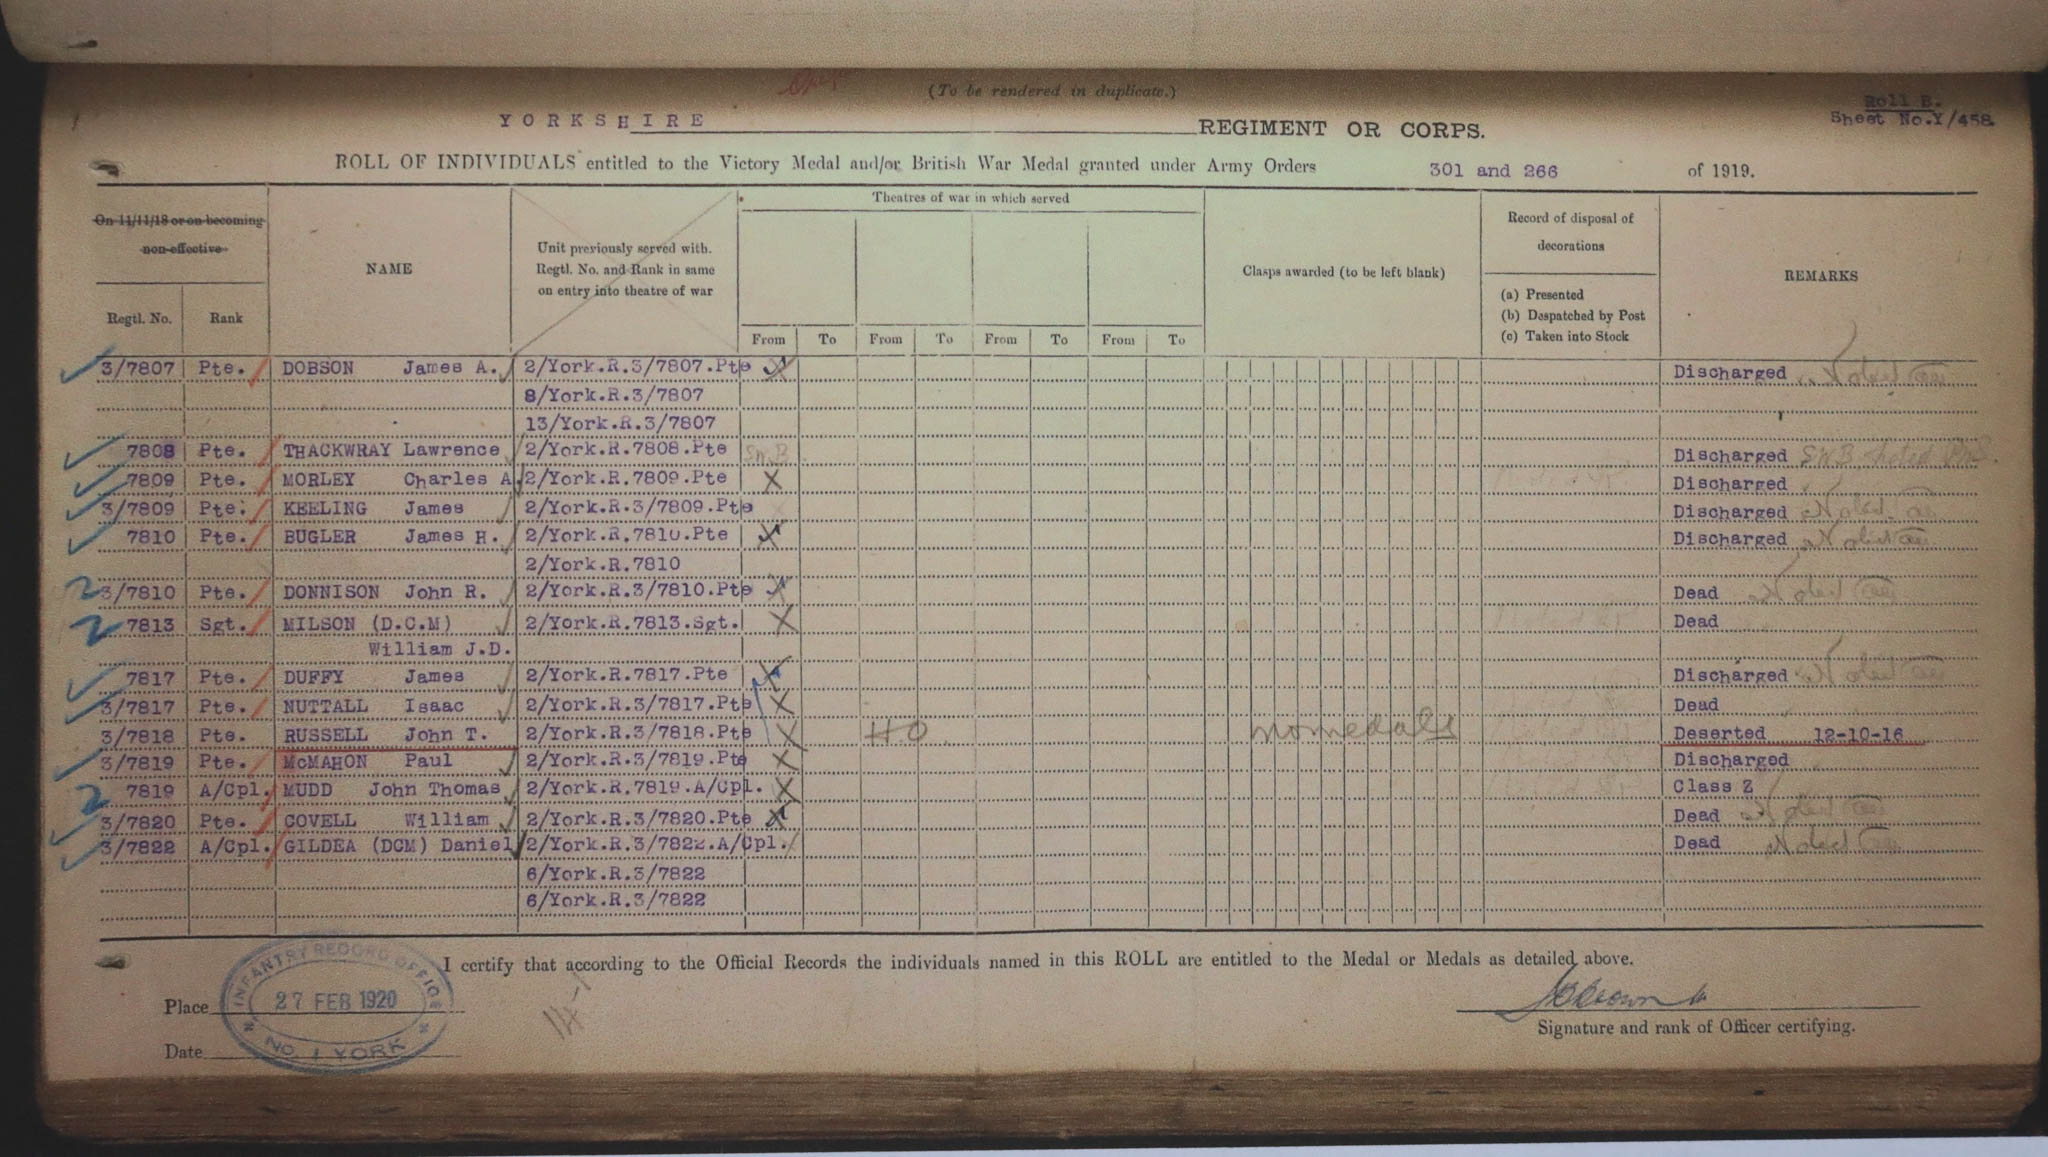 (To be rendered in duplicate.)
Roll B.
YORKSHIRE REGIMENT OR CORPS. Sheet No.Y/458
ROLL OF INDIVIDUALS entitled to the Victory Medal and/or British War Medal granted under Army Orders 301 and 266 of 1919.
On 11/11/18 or on becoming non-effective
Regtl. No. Rank
NAME
Unit previously served with.
Regtl. No. and Rank in same
on entry into theatre of war
Theatres of war in which served
From To From To From To From To
Clasps awarded (to be left blank)
Record of disposal of
decorations
(a) Presented
(b) Despatched by Post
(c) Taken into Stock
REMARKS
3/7807 Pte. DOBSON James A. 2/York.R.3/7807.Pte X Discharged Noted
8/York.R.3/7807
13/York.R.3/7807
7808 Pte. THACKWRAY Lawrence 2/York.R.7808.Pte SW.B. Discharged SWB noted
7809 Pte. MORLEY Charles A. 2/York.R.7809.Pte X Discharged
3/7809 Pte. KEELING James 2/York.R.3/7809.Pte Discharged Noted
7810 Pte. BUGLER James H. 2/York.R.7810.Pte X Discharged Noted
2/York.R.7810
2 3/7810 Pte. DONNISON John R. 2/York.R.3/7810.Pte X Dead Noted
2 7813 Sgt. MILSON (D.C.M) 2/York.R.7813.Sgt. X Dead
William J.D.
7817 Pte. DUFFY James 2/York.R.7817.Pte X Discharged Noted
3/7817 Pte. NUTTALL Isaac 2/York.R.3/7817.Pte X Dead
3/7818 Pte. RUSSELL John T. 2/York.R.3/7818.Pte X H.O. no medals Deserted 12-10-16
3/7819 Pte. McMAHON Paul 2/York.R.3/7819.Pte X Discharged
2 7819 A/Cpl. MUDD John Thomas 2/York.R.7819.A/Cpl. X Class Z
3/7820 Pte. COVELL William 2/York.R.3/7820.Pte X Dead Noted
3/7822 A/Cpl. GILDEA (DCM) Daniel 2/York.R.3/7822.A/Cpl. Dead Noted
6/York.R.3/7822
6/York.R.3/7822
I certify that according to the Official Records the individuals named in this ROLL are entitled to the Medal or Medals as detailed above.
Place
INFANTRY RECORD OFFICE
27 FEB 1920
NO. 1 YORK
Signature and rank of Officer certifying.
Date